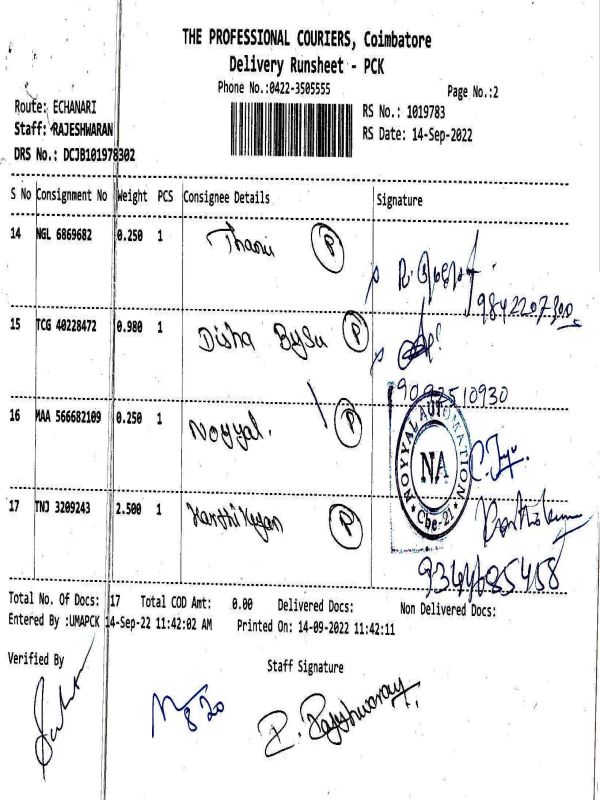 THE PROFESSIONAL COURIERS, Coimbatore
Delivery Runsheet - PCK
Phone No.:0422-3505555
Page No.:2
Route: ECHANARI
RS No.: 1019783
Staff: RAJESHWARAN
RS Date: 14-Sep-2022
DRS No.: DCJB101978302
S No Consignment No Weight PCS Consignee Details Signature
14 NGL 6869682 0.250 1 P
9842207300
15 TCG 40228472 0.980 1 Disha P
9092510930
16 MAA 566682109 0.250 1 Noyyal. P
NOYYAL AUTOMATION
NA
Cbe-21
17 TNJ 3209243 2.500 1 P
9344685458
Total No. Of Docs: 17 Total COD Amt: 0.00 Delivered Docs: Non Delivered Docs:
Entered By :UMAPCK 14-Sep-22 11:42:02 AM Printed On: 14-09-2022 11:42:11
Verified By
Staff Signature
820
P. Rajeshwaran